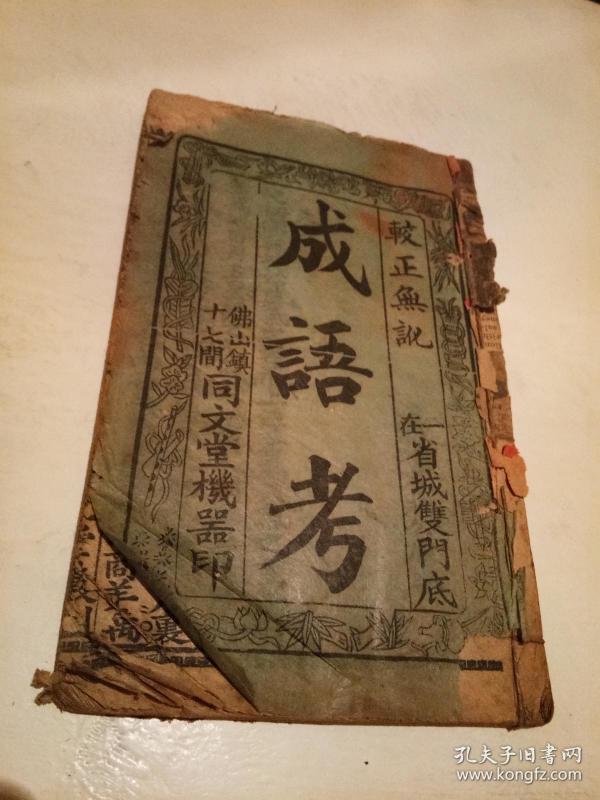 較正無訛
一在省城雙門底
成語考
佛山鎮
十七間
同文堂機器印
孔夫子旧书网
www.kongfz.com